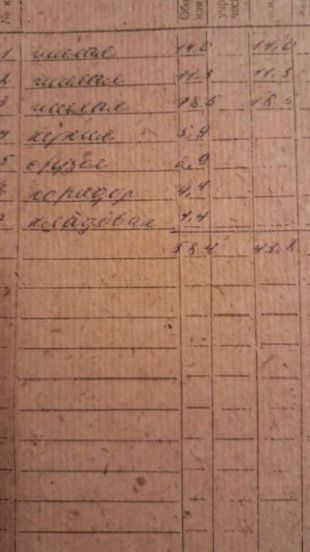 № к
1 жилая 14,0 14,0
2 жилая 11,3 11,3
3 жилая 18,5 18,5
4 кухня 5,9
5 с/узел 2,9
6 коридор 4,4
7 кладовая 1,4
58,4 43,8